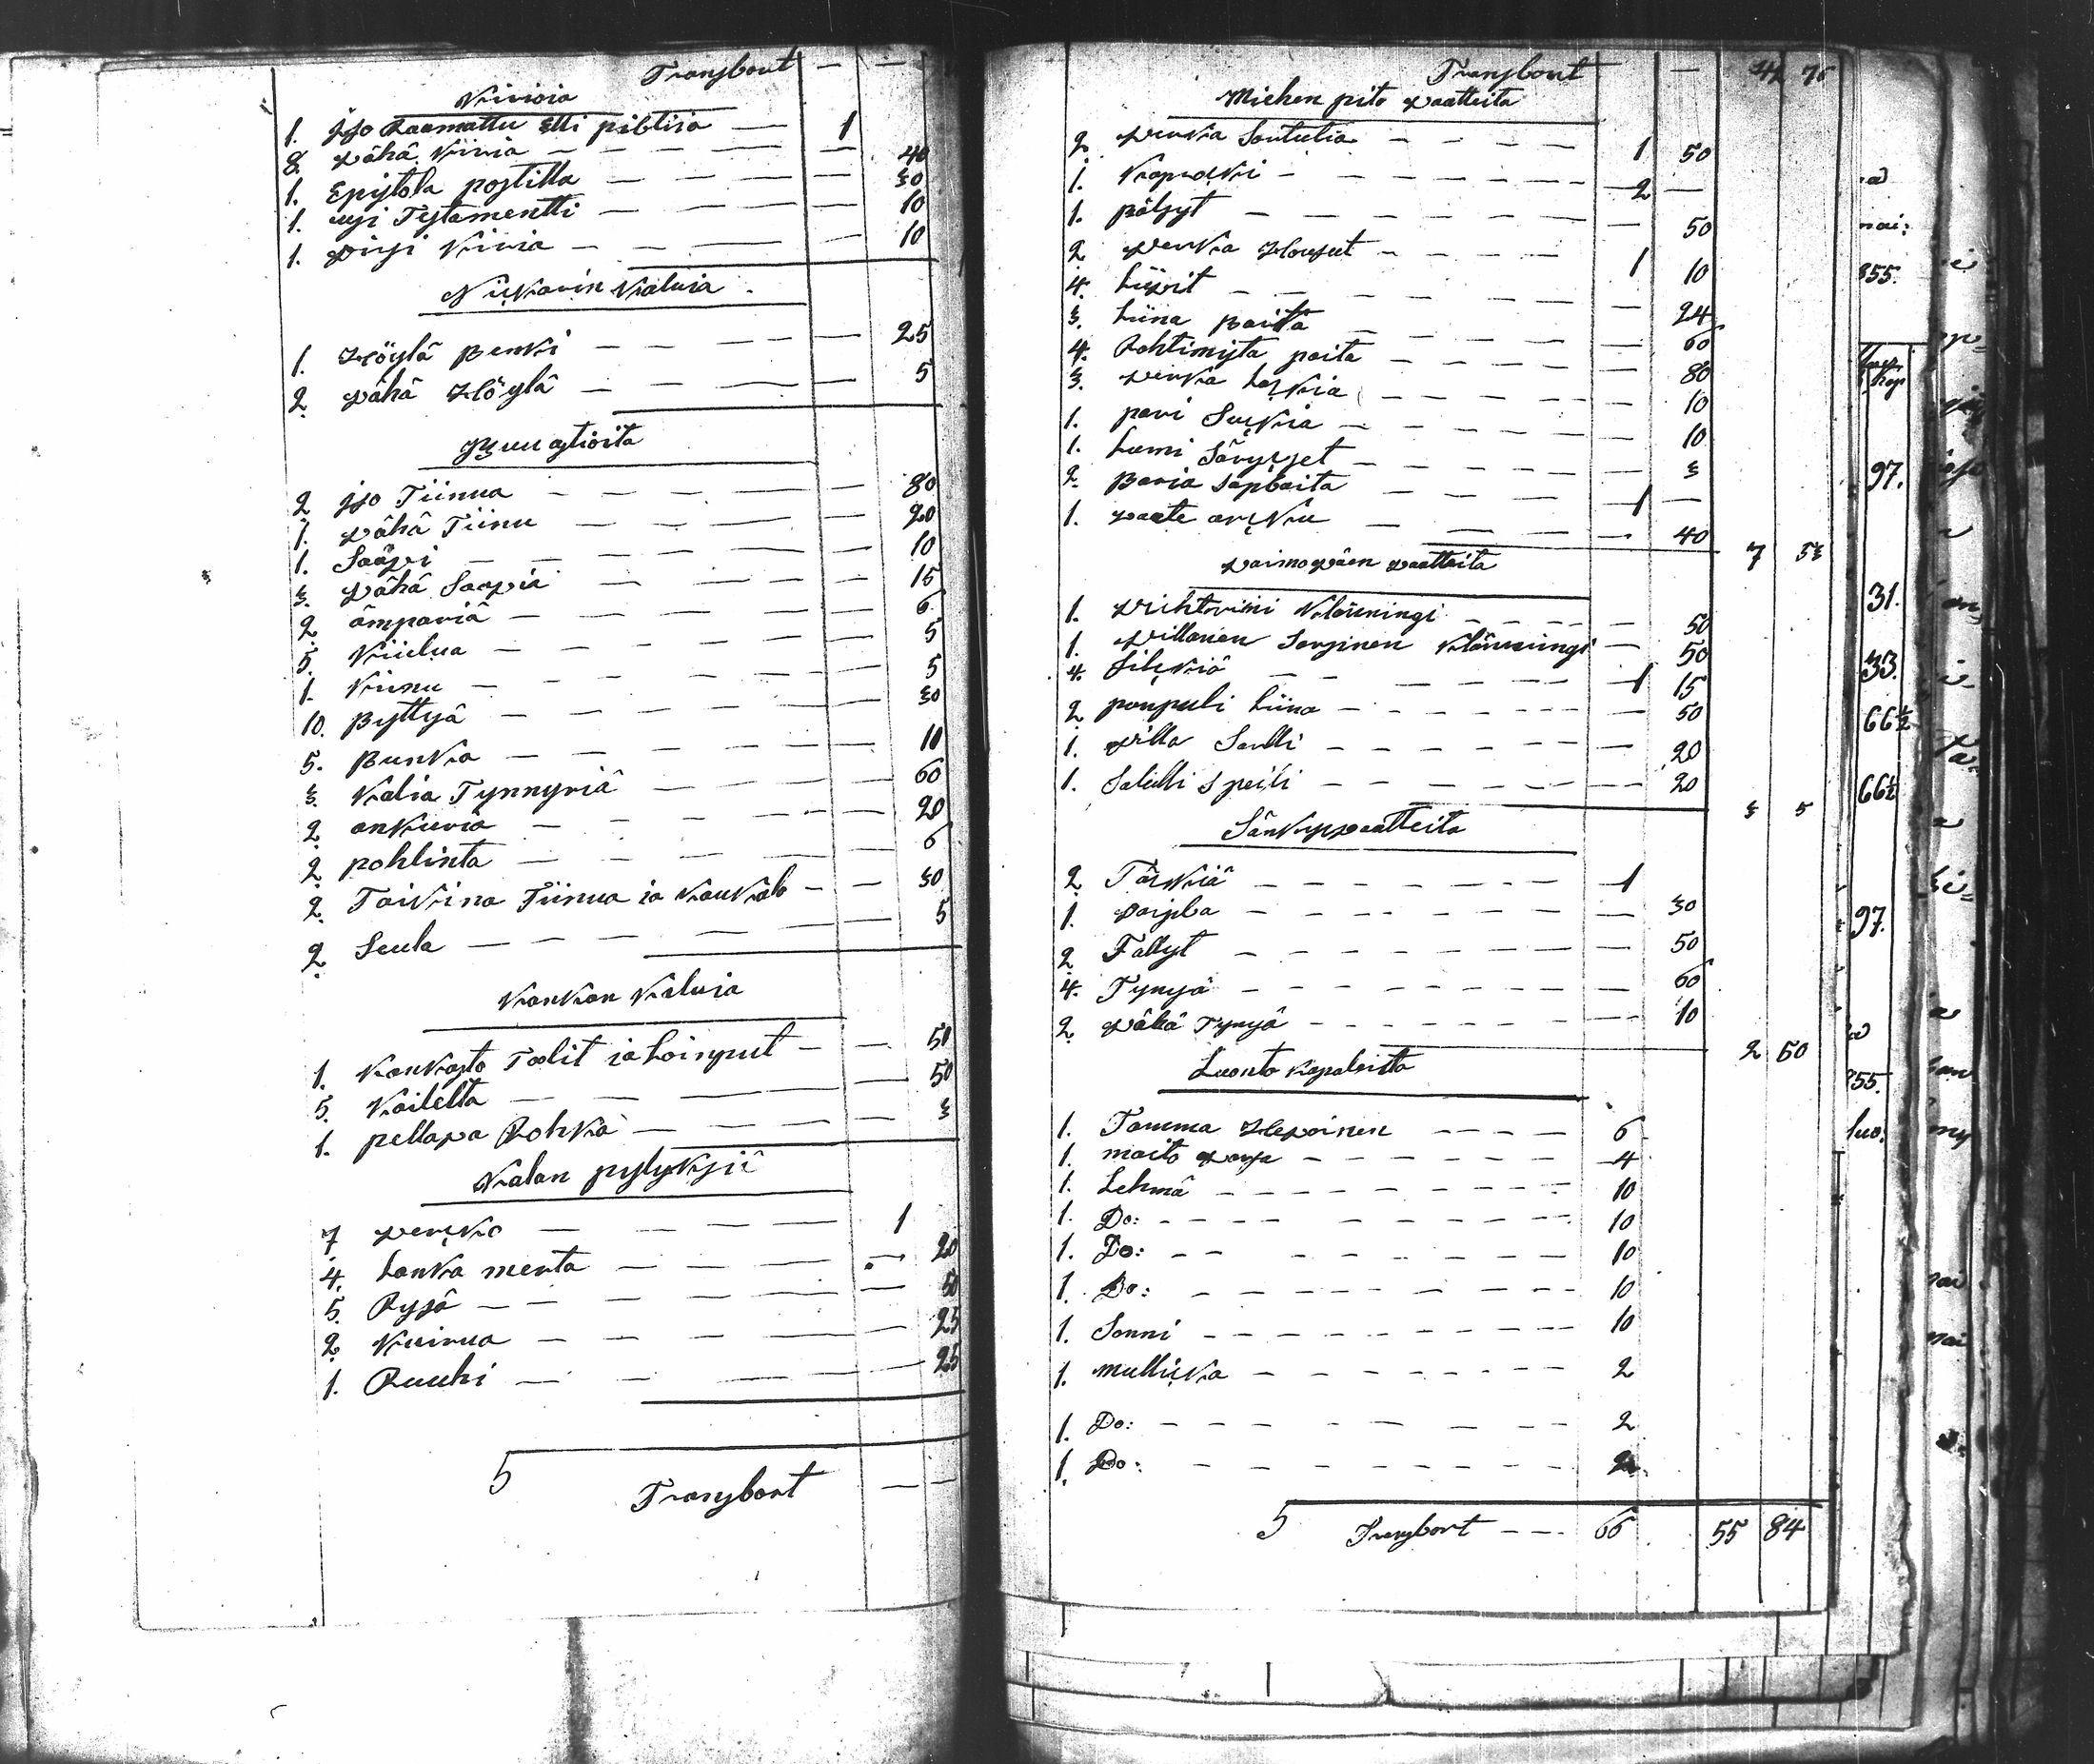 Transport — —
Kirioia
1. iso Raamattu Elli piblija — 1
8. vähä Kiria — — — — — 40
1. Epistola postilla — — — — 30
1. uusi Testamentti — — — — 10
1. virsi Kiria — — — — 10
Nikkarin Kaluja
1. Höylä Penki — — — — 25
2 vähä Höylä — — — — 5
Puu astioita
2 iso Tiinua — — — — 80
1. vähä Tiinu — — — — 20
1. Saavi — — — — 10
3. vähä Saavia — — — — 15
2 ämpäriä — — — — 6
5. Kiulua — — — — 5
1. Kiinu — — — — 5
10. Byttyä — — — — 30
5. Bunkia — — — — 10
3. Kalia Tynnyriä — — — 60
2 ankuria — — — — 20
2 pohlinta — — — — 6
2 Taikina Tiinua ia Kaukalo — — 30
2 Seula — — — — 5
Kankan Kaluia
1. Kankasto Tolit ia Loinput — — 50
5. Kaidetta — — — 50
1. pellava Rohka — — — 3
Kalan pydyksiä
7 verkko — — — — 1
4. Lanka merta — — — — 20
5. Rysä — — — — 50
2 Kuirua — — — — 25
1. Ruuhi — — — — 25
5 Transport — —
Transport — 42 76
Miehen pito vaatteita
2 verka Sortutia — — — — 1 50
1. Kaprokki — — — — 2 —
1. pölsyt — — — — 50
2 verka Housut — — — — 1 10
4. Liivit — — — — 24
3. Liina Paita — — — — 60
4. Rohtimista paita — — — — 80
3. verka Lakkia — — — — 10
1. pari Sukkia — — — — 10
1. Lumi Särykset — — — — 3
2. Paria Sapkaita — — — — 1 —
1. vaate arkku — — — — 40 7 53
vaimoväen vaatteita
1. vihtrini Kläninngi — — — — 50
1. villanen Sarsinen Kläninngi — 50
4. Silkkiä — — — — 1 15
2 ponpuli Liina — — — — 50
1. villa Saalli — — — — 20
1. Salulli Speili — — — — 20 3 5
Sänkyvaatteita
2 Täkkiä — — — — 1
1. vaippa — — — — 30
2 Fällyt — — — — 50
4. Tynyä — — — — 60
2 vähä Tynyä — — — — 10 2 50
Luonto kapaleita
1. Tamma Hevoinen — — — — 6
1. maito varsa — — — — 4
1. Lehmä — — — — 10
1. Do: — — — — 10
1. Do: — — — — 10
1. Do: — — — — 10
1. Sonni — — — — 10
1. mullikka — — — — 2
1. Do: — — — — 2
1. Do: — — — — 2
5 Transport — — — 66 55 84
855.
97.
31.
33.
66½
66½
97.
855.